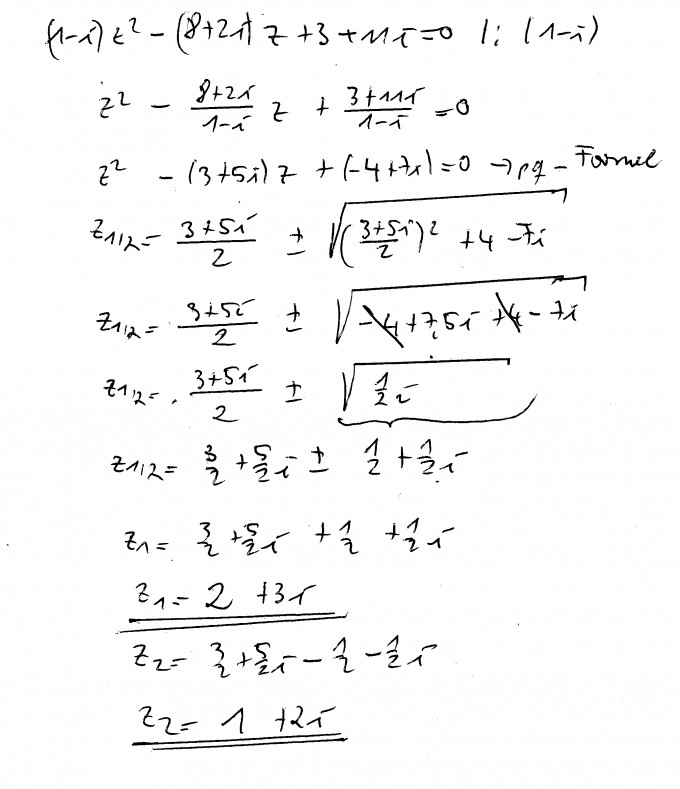 (1-i) z² - (8+2i) z + 3 + 11i = 0 |: (1-i)
z² - (8+2i)/(1-i) z + (3+11i)/(1-i) = 0
z² - (3+5i) z + (-4+7i) = 0 → pq-Formel
z1/2 = (3+5i)/2 ± √(((3+5i)/2)² + 4 - 7i)
z1,2 = (3+5i)/2 ± √(-4 + 7,5i + 4 - 7i)
z1,2 = (3+5i)/2 ± √(1/2 i)
z1/2 = 3/2 + 5/2 i ± 1/2 + 1/2 i
z1 = 3/2 + 5/2 i + 1/2 + 1/2 i
z1 = 2 + 3i
z2 = 3/2 + 5/2 i - 1/2 - 1/2 i
z2 = 1 + 2i